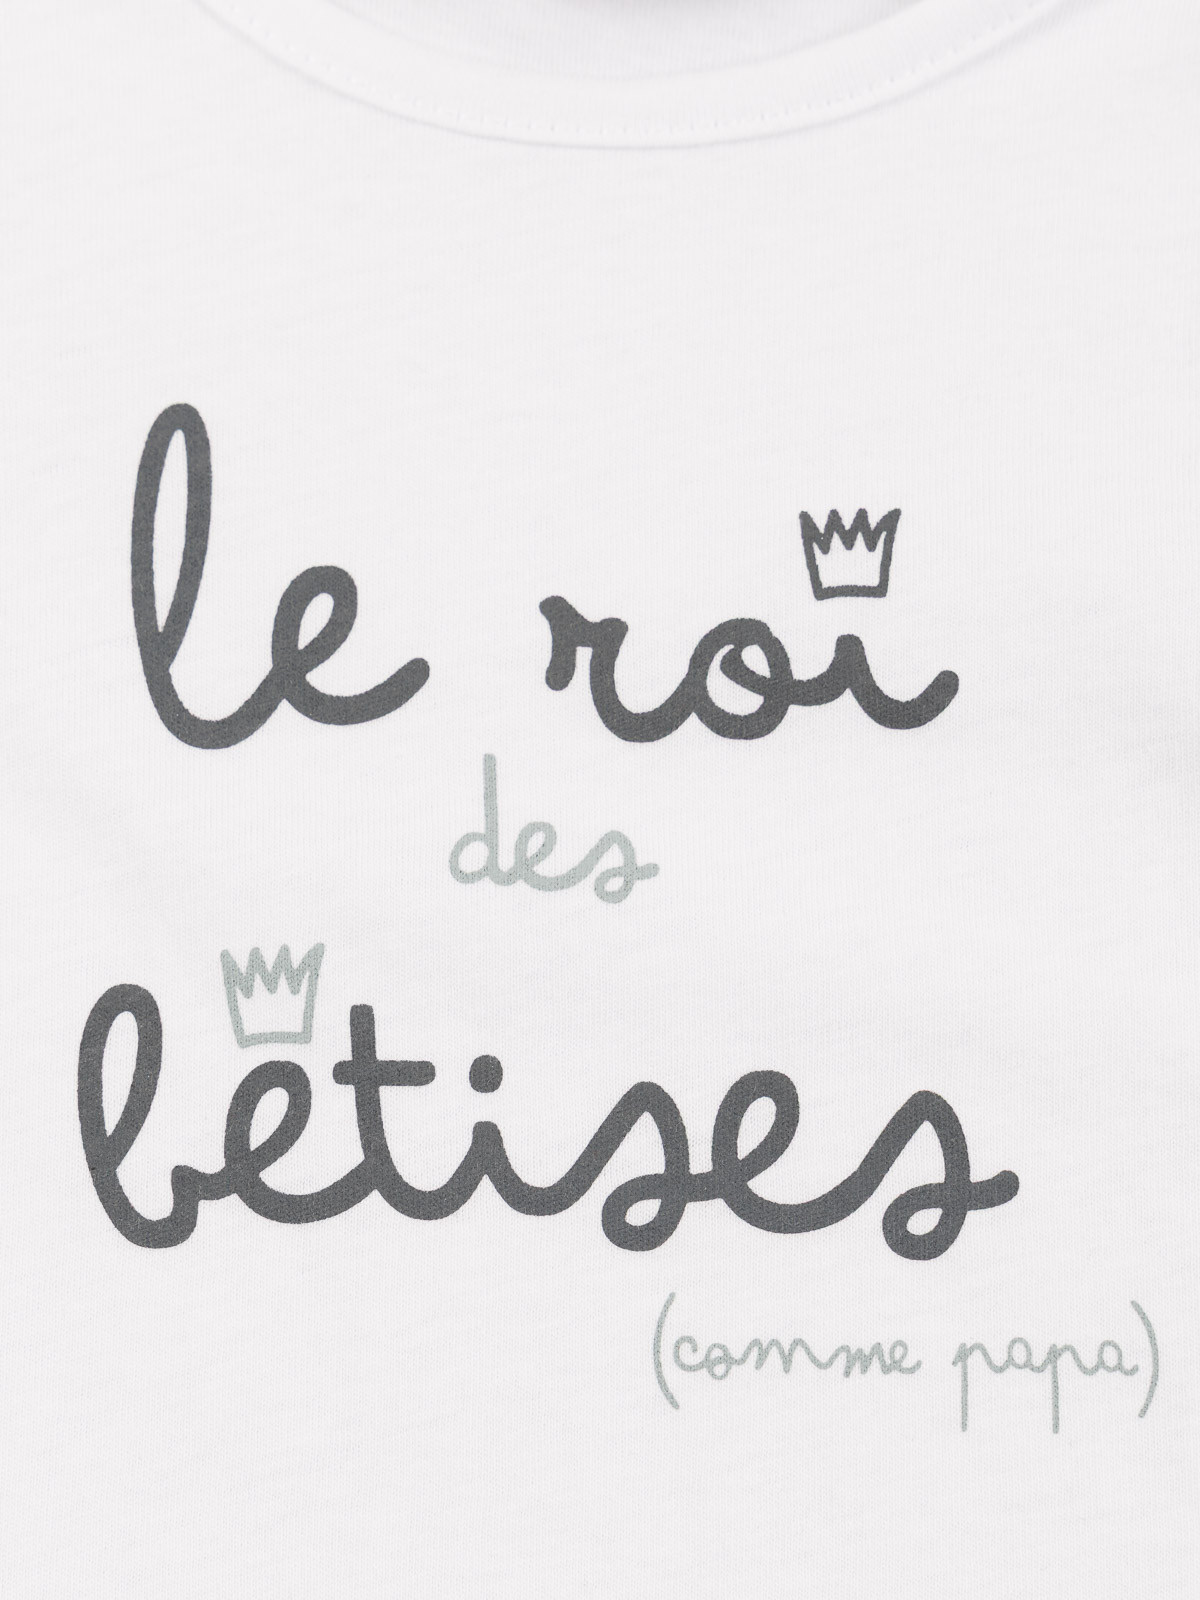 le roi
des
bêtises
(comme papa)